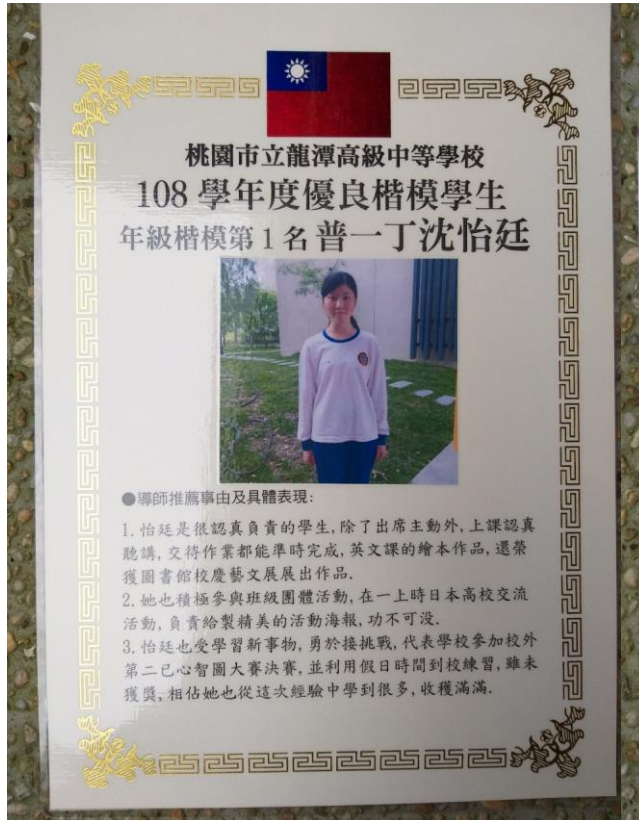 桃園市立龍潭高級中等學校
108 學年度優良楷模學生
年級楷模第 1 名 普一丁沈怡廷
●導師推薦事由及具體表現:
1. 怡廷是很認真負責的學生, 除了出席主動外, 上課認真
聽講, 交待作業都能準時完成, 英文課的繪本作品, 還榮
獲圖書館校慶藝文展展出作品.
2. 她也積極參與班級團體活動, 在一上時日本高校交流
活動, 負責給製精美的活動海報, 功不可没.
3. 怡廷也受學習新事物, 勇於接挑戰, 代表學校參加校外
第二已心智圖大賽決賽, 並利用假日時間到校練習, 雖未
獲獎, 相佔她也從這次經驗中學到很多, 收穫滿滿.